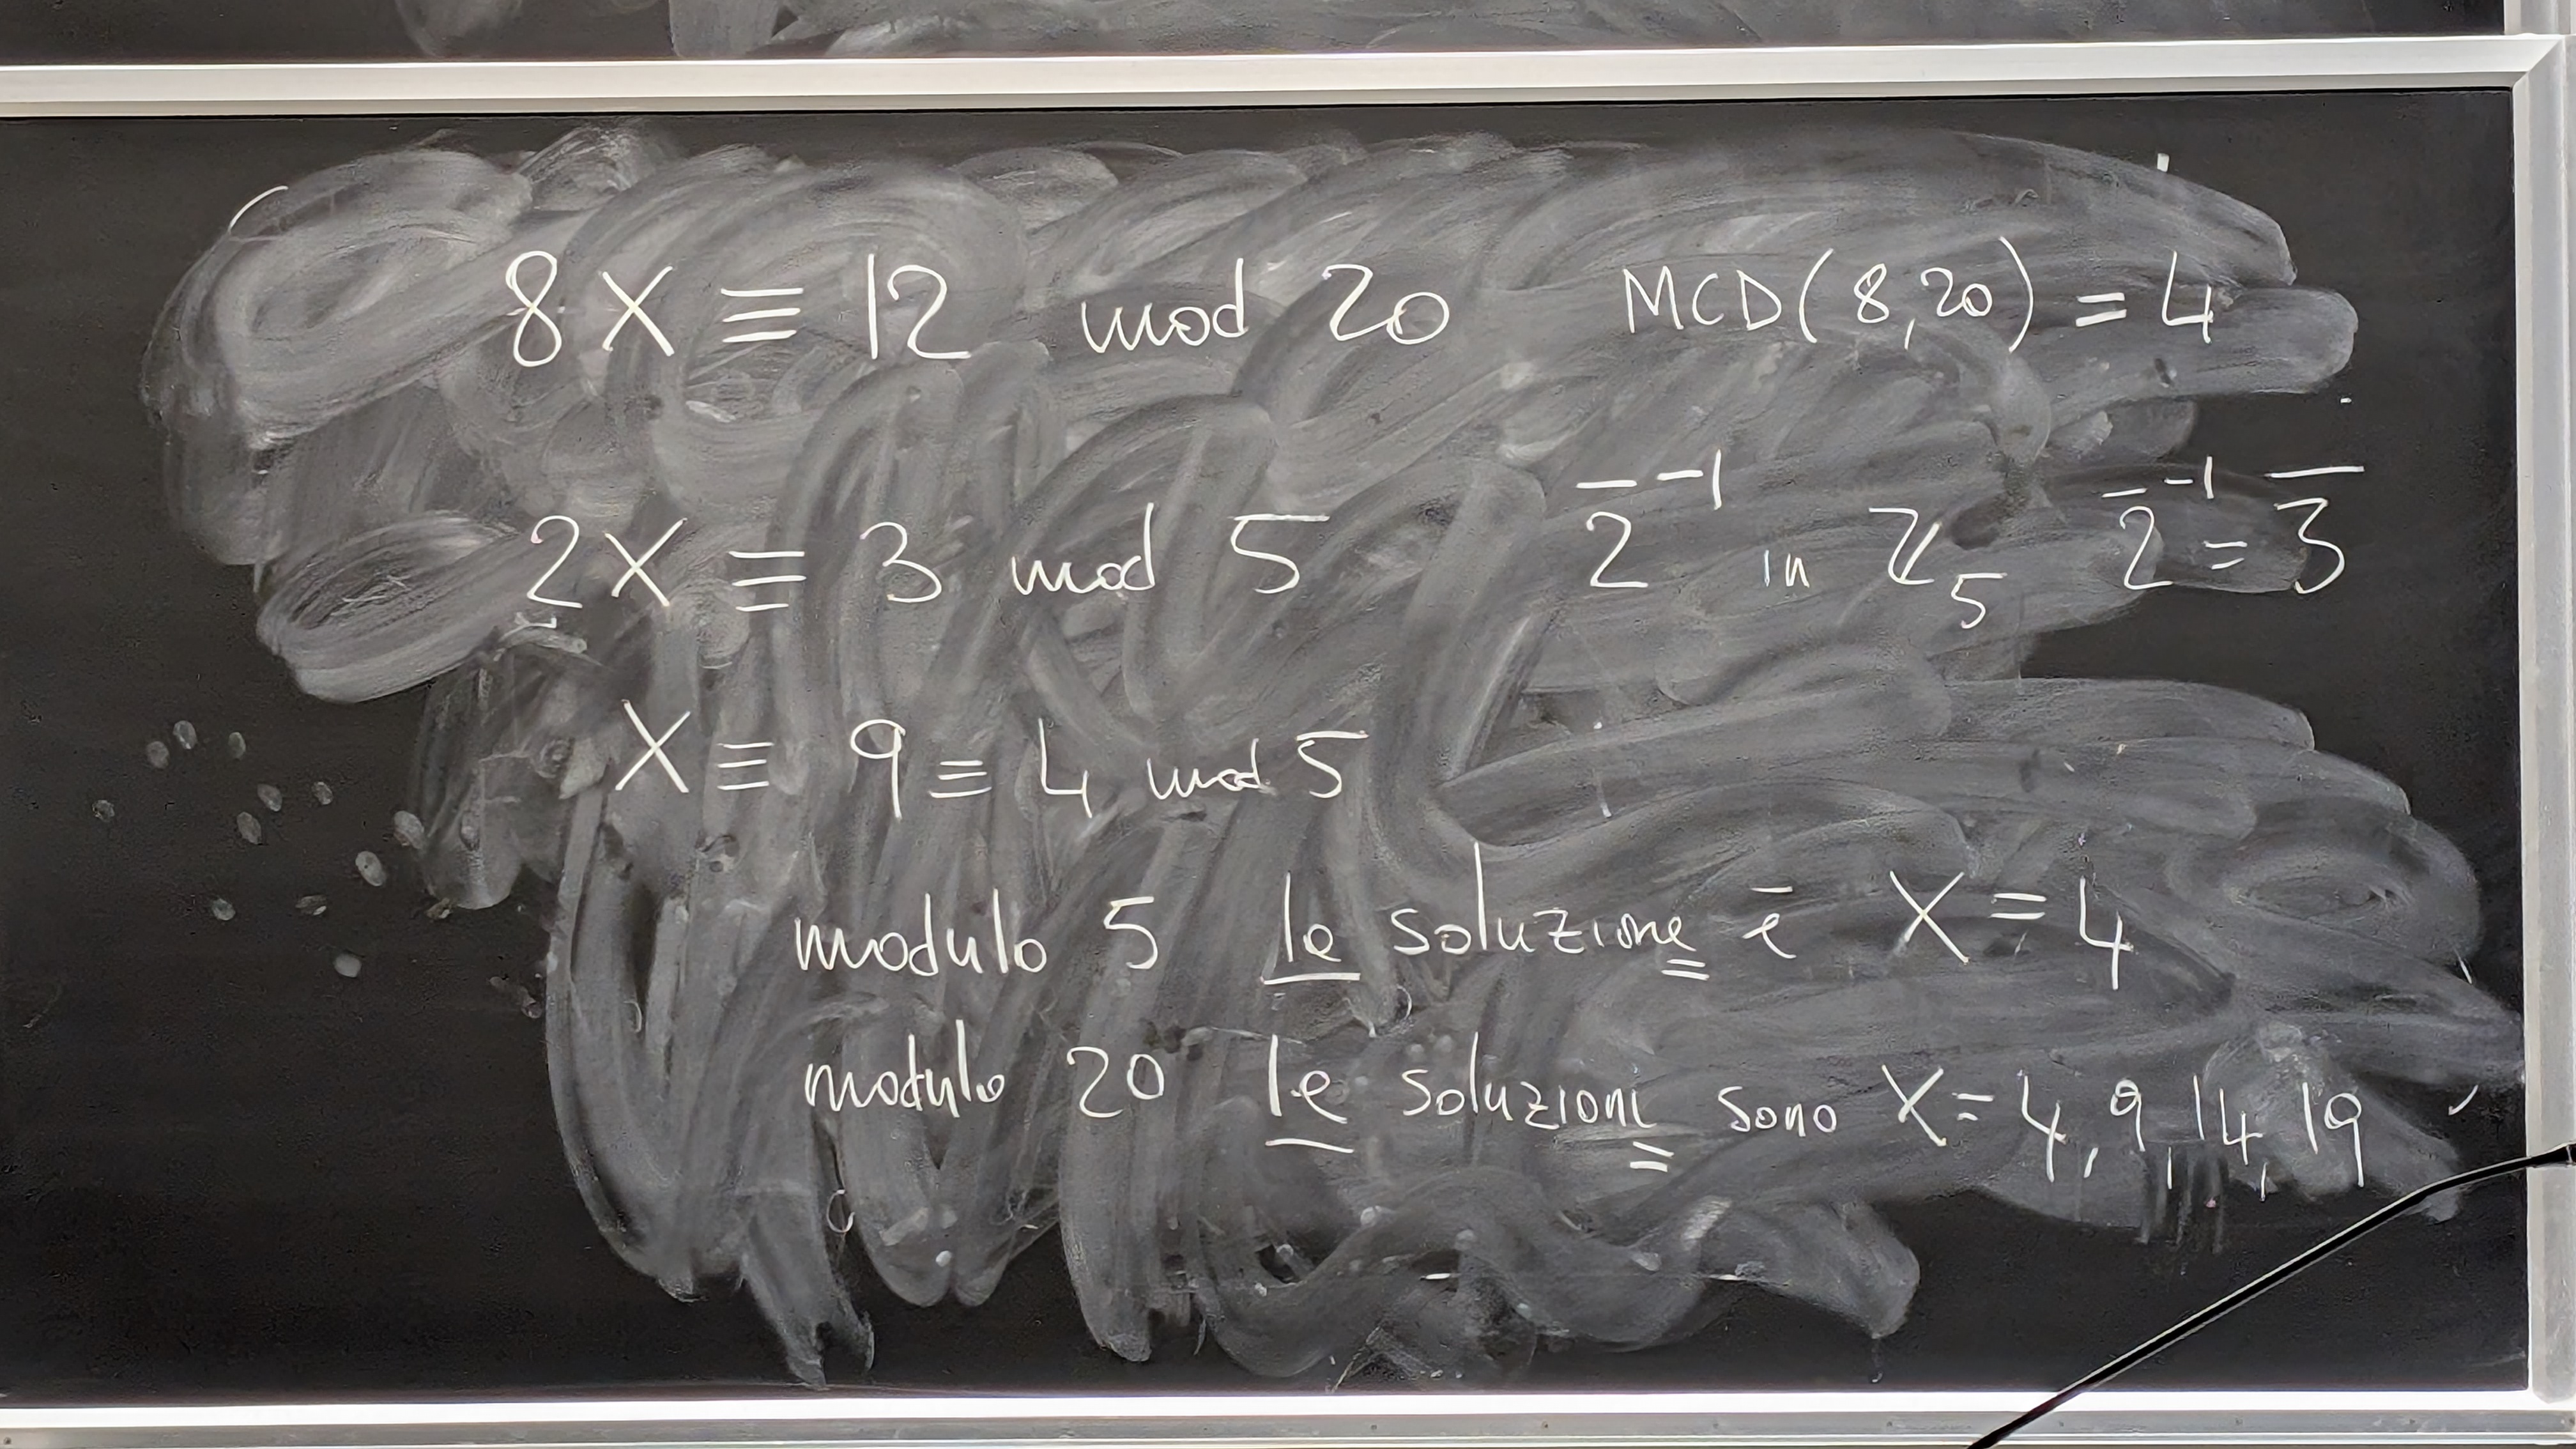 8X ≡ 12 mod 20 MCD(8,20) = 4
2X ≡ 3 mod 5 2̄⁻¹ in ℤ₅ 2̄⁻¹ = 3̄
X ≡ 9 ≡ 4 mod 5
modulo 5 la soluzione è X = 4
modulo 20 le soluzioni sono X = 4, 9, 14, 19